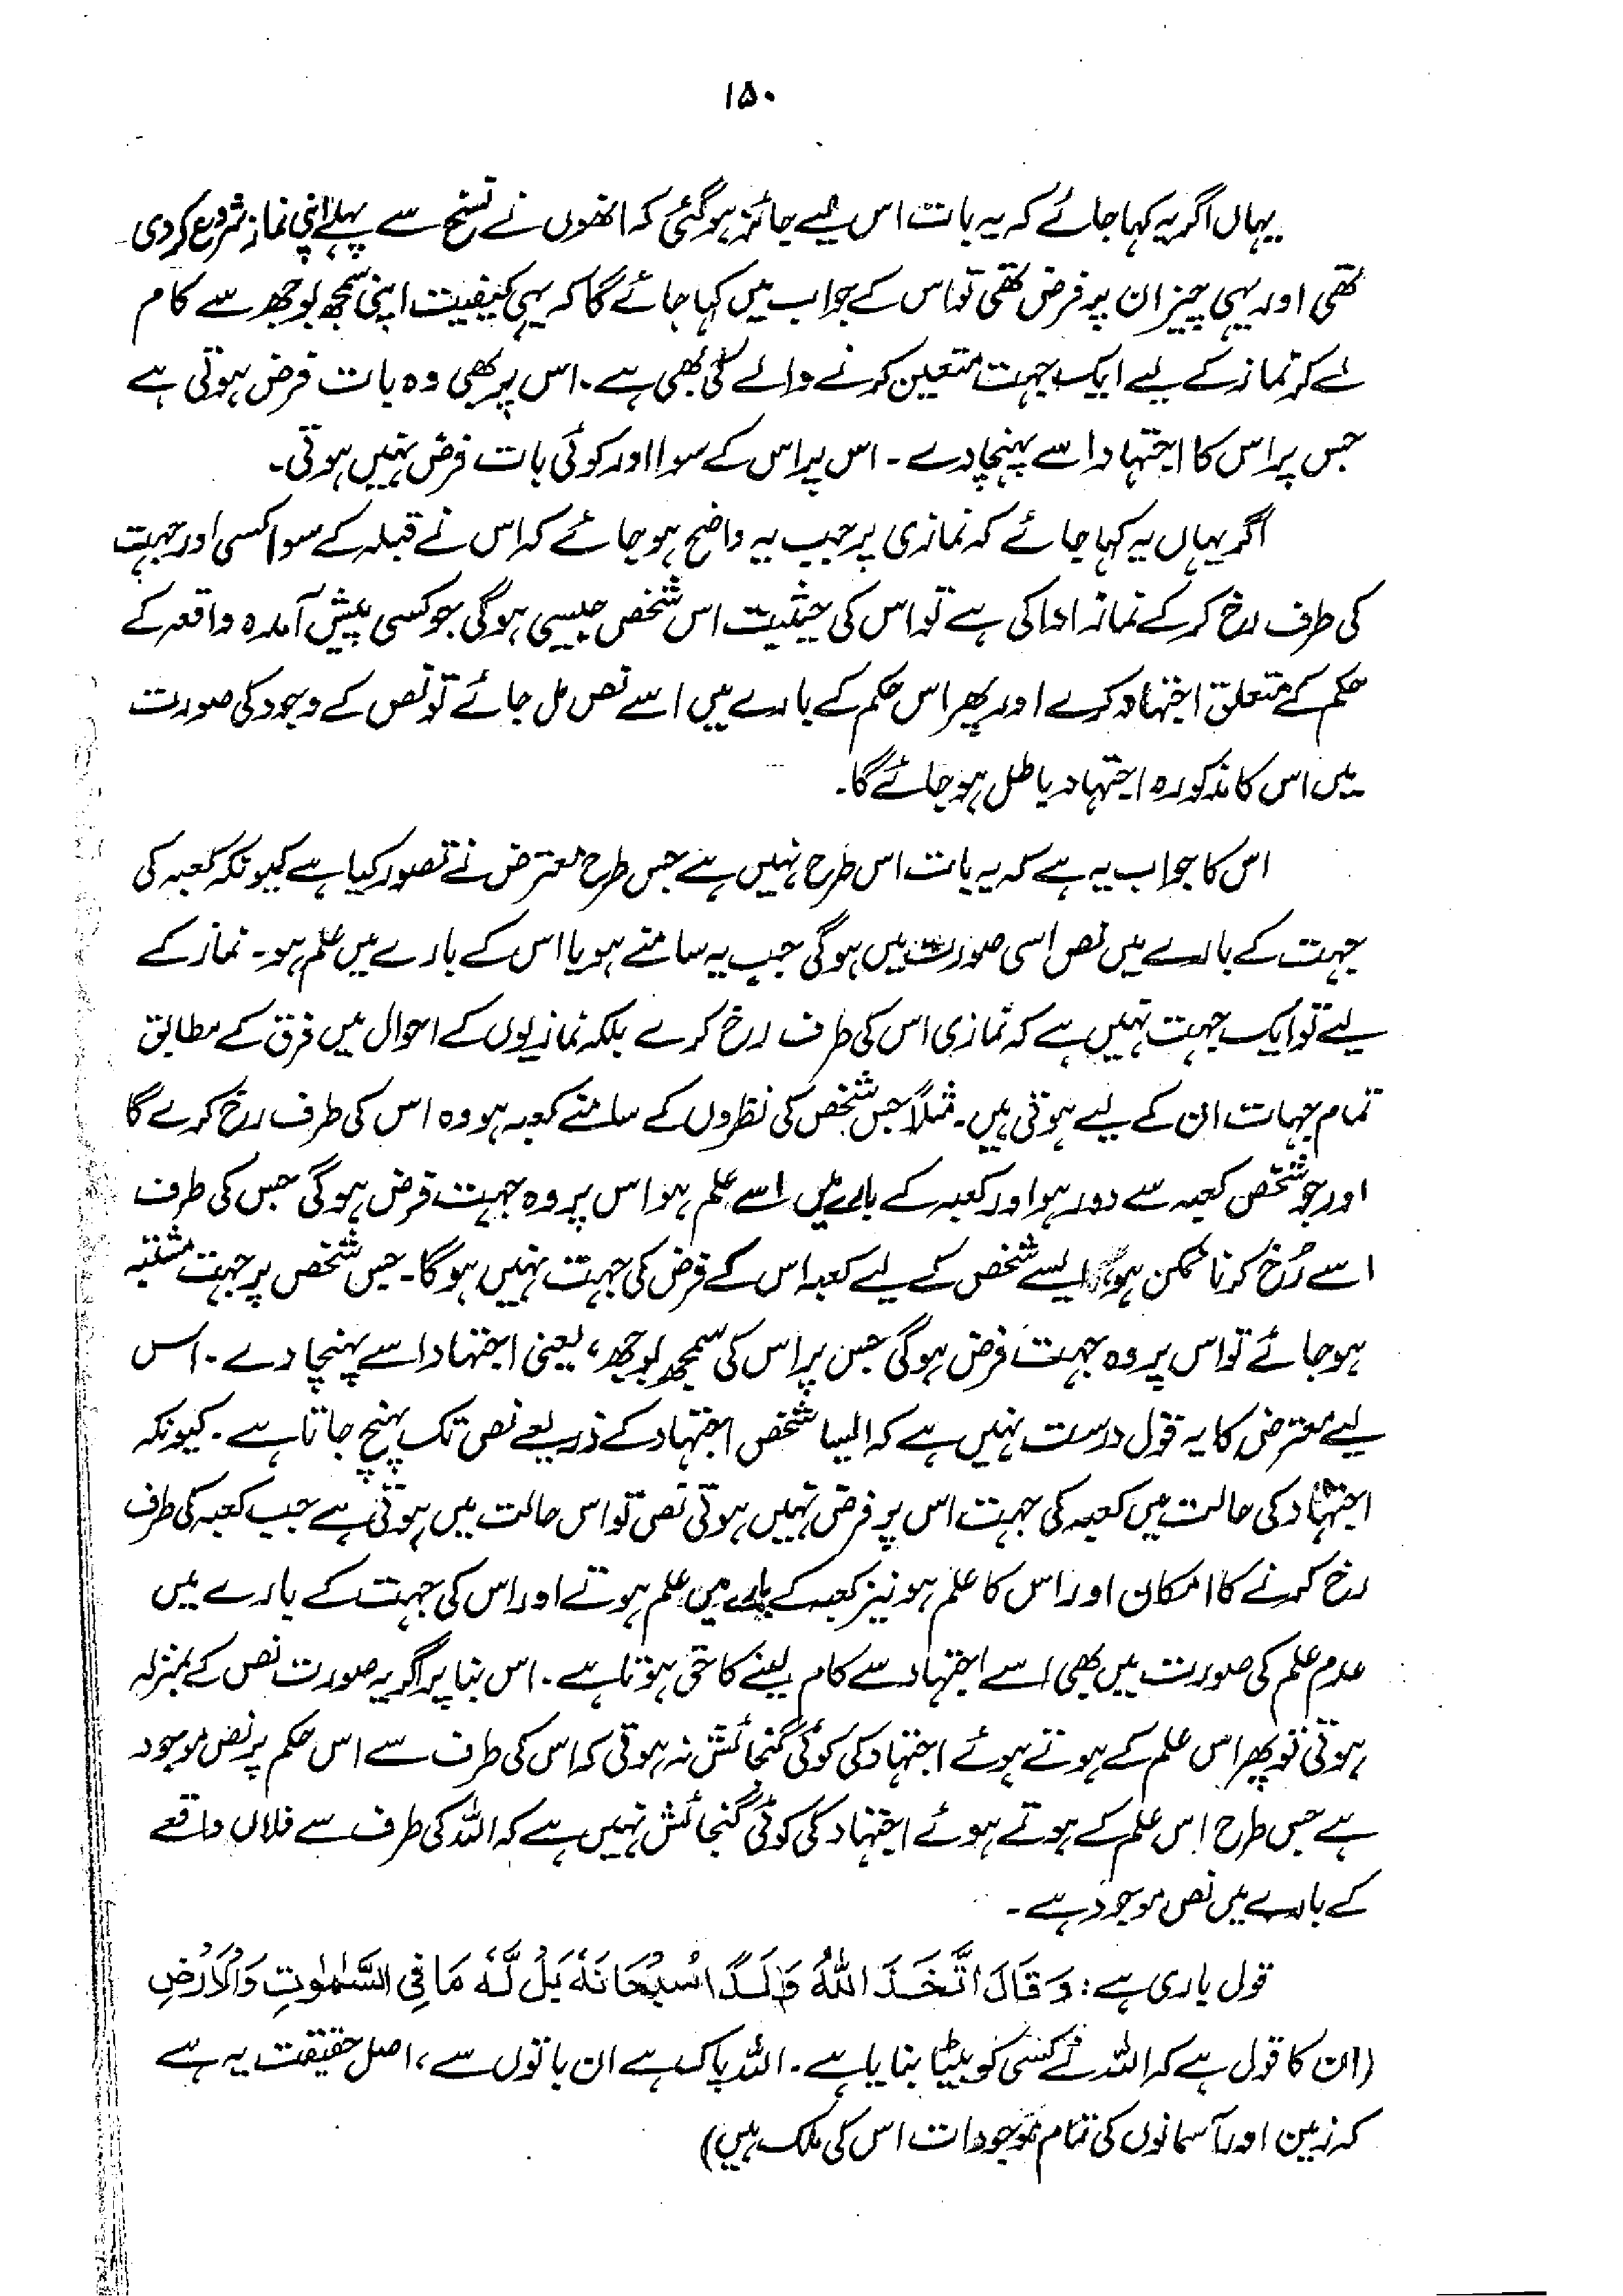 ۱۵۰
یہاں اگر یہ کہا جائے کہ یہ بات اس لیے جائز ہو گئی کہ انھوں نے نسخ سے پہلے اپنی نماز شروع کر دی
تھی اور یہی چیز ان پر فرض تھی تو اس کے جواب میں کہا جائے گا کہ یہی کیفیت اپنی سمجھ بوجھ سے کام
لے کر نماز کے لیے ایک جہت متعین کرنے والے کی بھی ہے۔ اس پر بھی وہ بات فرض ہوتی ہے
جس پر اس کا اجتہاد اسے پہنچا دے۔ اس پر اس کے سوا اور کوئی بات فرض نہیں ہوتی۔
اگر یہاں یہ کہا جائے کہ نمازی پر جب یہ واضح ہو جائے کہ اس نے قبلہ کے سوا کسی اور جہت
کی طرف رخ کر کے نماز ادا کی ہے تو اس کی حیثیت اس شخص جیسی ہوگی جو کسی پیش آمدہ واقعہ کے
حکم کے متعلق اجتہاد کرے اور پھر اس حکم کے بارے میں اسے نص مل جائے تو نص کے وجود کی صورت
میں اس کا مذکورہ اجتہاد باطل ہو جائے گا۔
اس کا جواب یہ ہے کہ یہ بات اس طرح نہیں ہے جس طرح معترض نے تصور کیا ہے کیونکہ کعبہ کی
جہت کے بارے میں نص اسی صورت میں ہوگی جب یہ سامنے ہو یا اس کے بارے میں علم ہو۔ نماز کے
لیے تو ایک جہت نہیں ہے کہ نمازی اس کی طرف رخ کرے بلکہ نمازیوں کے احوال میں فرق کے مطابق
تمام جہات ان کے لیے ہوتی ہیں۔ مثلاً جس شخص کی نظروں کے سامنے کعبہ ہو وہ اس کی طرف رخ کرے گا
اور جو شخص کعبہ سے دور ہو اور کعبہ کے بارے میں اسے علم ہو اس پر وہ جہت فرض ہوگی جس کی طرف
اسے رُخ کرنا ممکن ہوگا ایسے شخص کے لیے کعبہ اس کے فرض کی جہت نہیں ہوگا۔ جس شخص پر جہت مشتبہ
ہو جائے تو اس پر وہ جہت فرض ہوگی جس پر اس کی سمجھ بوجھ، یعنی اجتہاد اسے پہنچا دے۔ اس
لیے معترض کا یہ قول درست نہیں ہے کہ ایسا شخص اجتہاد کے ذریعے نص تک پہنچ جاتا ہے۔ کیونکہ
اجتہاد کی حالت میں کعبہ کی جہت اس پر فرض نہیں ہوتی نص تو اس حالت میں ہوتی ہے جب کعبہ کی طرف
رخ کرنے کا امکان اور اس کا علم ہو نیز کعبہ کے بارے میں علم ہوتے اور اس کی جہت کے بارے میں
عدم علم کی صورت میں بھی اسے اجتہاد سے کام لینے کا حق ہوتا ہے۔ اس بنا پر اگر یہ صورت نص کے بمنزلہ
ہوتی تو پھر اس علم کے ہوتے ہوئے اجتہاد کی کوئی گنجائش نہ ہوتی کہ اس کی طرف سے اس حکم پر نص موجود
ہے جس طرح اس علم کے ہوتے ہوئے اجتہاد کی کوئی گنجائش نہیں ہے کہ اللہ کی طرف سے فلاں واقعے
کے بارے میں نص موجود ہے۔
قول باری ہے: وَقَالَ اتَّخَذَ اللّٰهُ وَلَدًا سُبْحَانَهٗ بَلْ لَّهٗ مَا فِی السَّمٰوٰتِ وَالْاَرْضِ
(ان کا قول ہے کہ اللہ نے کسی کو بیٹا بنایا ہے۔ اللہ پاک ہے ان باتوں سے، اصل حقیقت یہ ہے
کہ زمین اور آسمانوں کی تمام موجودات اس کی ملک ہیں)